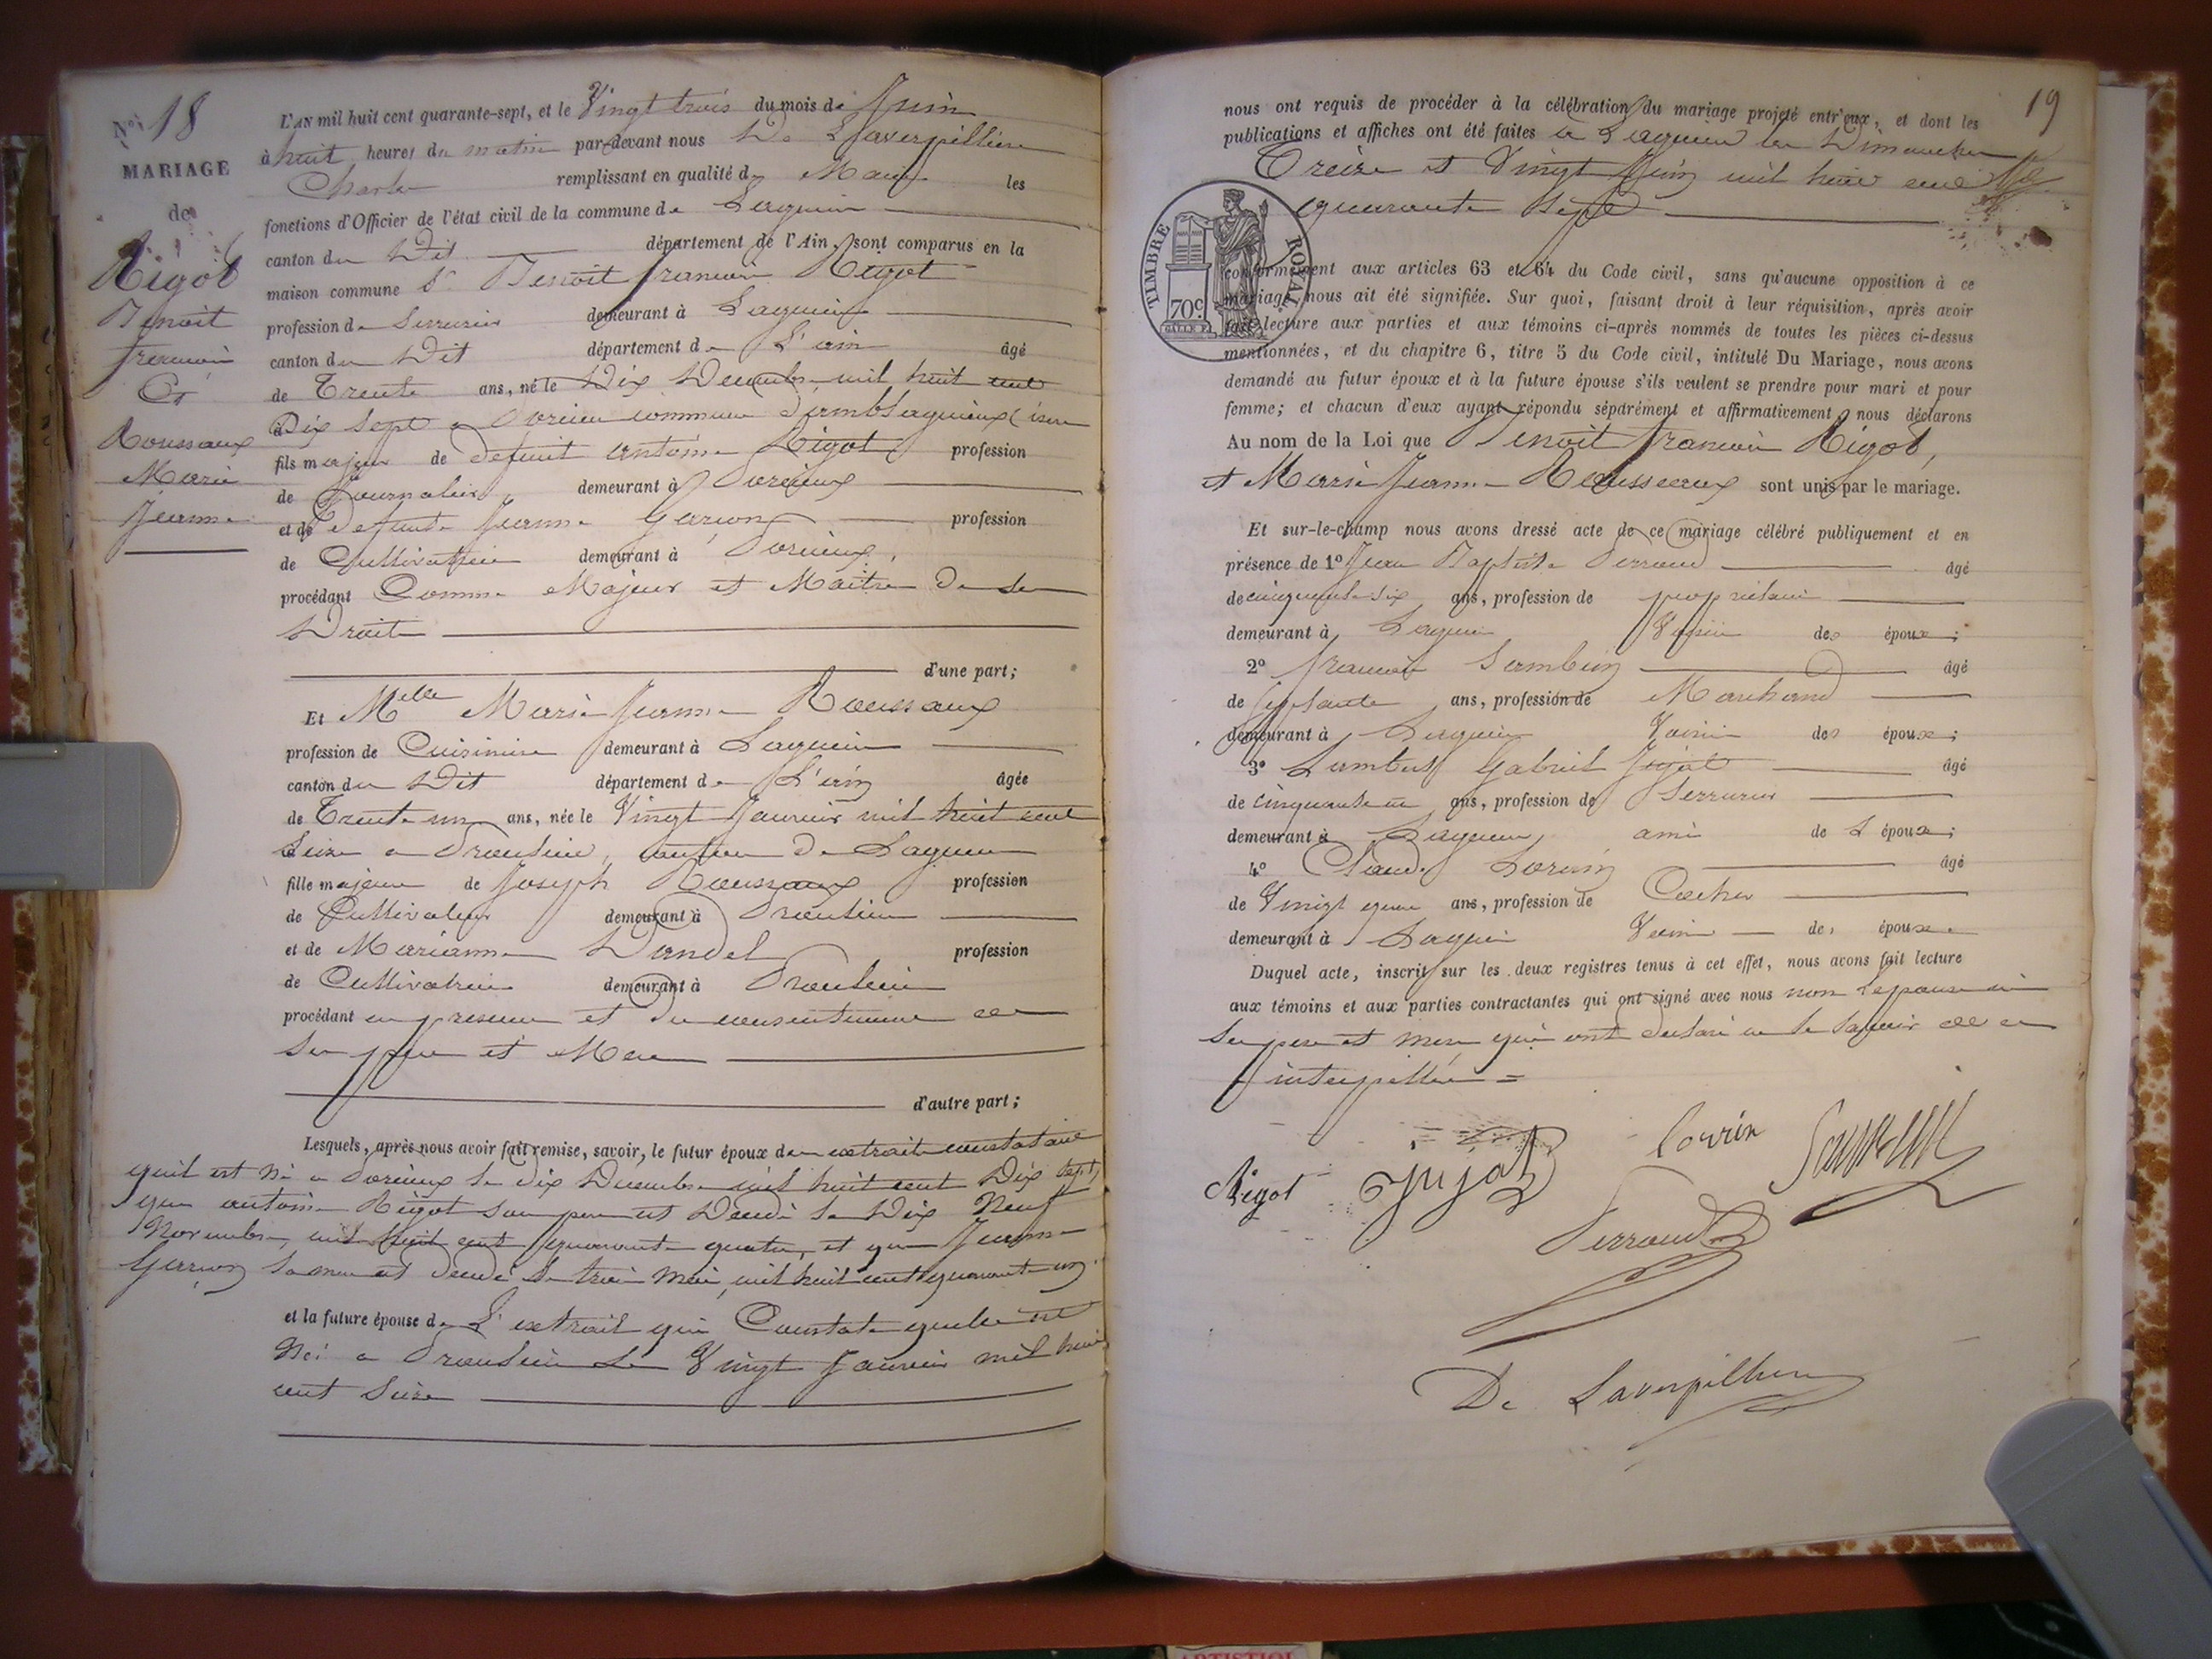 N° 18
MARIAGE
de
Rigot
Benoit
francois
Et
Roussaux
Marie
Jeanne
L'AN mil huit cent quarante-sept, et le Vingt trois du mois de Juin
à huit heures du matin par-devant nous De Laverpilliere
Charles remplissant en qualité de Maire les
fonctions d'Officier de l'état civil de la commune de Lagnieu
canton du Dit département de l'Ain, sont comparus en la
maison commune Sr Benoit francois Rigot
profession de Serrurier demeurant à Lagnieu
canton du Dit département de L'ain âgé
de Trente ans, né le Dix Decembre mil huit cent
Dix Sept a Vercieu commune d'amblagnieux (isere
fils majeur de defunt antoine Rigot profession
de Journalier demeurant à
et de Defunte Jeanne profession
de Cultivatrice demeurant à
procédant Comme Majeur et Maitre De ses
Droits
d'une part;
Et Melle Marie Jeanne Roussaux
profession de Cuisiniere demeurant à Lagnieu
canton du Dit département de L'ain âgée
de Trente un ans, née le Vingt Janvier mil huit cent
Seize a Proulieu, de Lagnieu
fille majeure de Joseph Roussaux profession
de Cultivateur demeurant à Proulieu
et de Marianne Dandel profession
de Cultivatrice demeurant à Proulieu
procédant en presence et du consentement de
Ses pere et Mere
d'autre part;
Lesquels, après nous avoir fait remise, savoir, le futur époux de un extrait constatant
quil est Né a le dix Decembre mil huit cent Dix sept,
que antoine Rigot son pere est Decedé le Dix Neuf
Novembre, mil huit cent quarante quatre, et que Jeanne
sa mere est decedé le trois mai, mil huit cent quarante un.
et la future épouse de L'extrait qui Constate quelle est
Née a Proulieu le Vingt Janvier mil huit
cent Seize
19
nous ont requis de procéder à la célébration du mariage projeté entr'eux, et dont les
publications et affiches ont été faites a Lagnieu les Dimanches
Treize et Vingt Juin mil huit cent
quarante Sept
TIMBRE ROYAL
70c
conformément aux articles 63 et 64 du Code civil, sans qu'aucune opposition à ce
mariage nous ait été signifiée. Sur quoi, faisant droit à leur réquisition, après avoir
fait lecture aux parties et aux témoins ci-après nommés de toutes les pièces ci-dessus
mentionnées, et du chapitre 6, titre 5 du Code civil, intitulé Du Mariage, nous avons
demandé au futur époux et à la future épouse s'ils veulent se prendre pour mari et pour
femme; et chacun d'eux ayant répondu séparément et affirmativement, nous déclarons
Au nom de la Loi que Benoit francois Rigot,
et Marie Jeanne Rousseaux sont unis par le mariage.
Et sur-le-champ nous avons dressé acte de ce mariage célébré publiquement et en
présence de 1° Jean Baptiste Perraud âgé
de cinquante six ans, profession de proprietaire
demeurant à Lagnieu Voisin des époux;
2° francois âgé
de soixante ans, profession de Marchand
demeurant à Lagnieu Voisin des époux;
3° Lambert Gabriel Jujat âgé
de cinquante un ans, profession de Serrurier
demeurant à Lagnieu ami de L époux;
4° Claude Lorrin âgé
de Vingt quatre ans, profession de Cocher
demeurant à Lagnieu Voisin des époux.
Duquel acte, inscrit sur les deux registres tenus à cet effet, nous avons fait lecture
aux témoins et aux parties contractantes qui ont signé avec nous non lepouse ni
Ses pere et mere qui ont declaré ne le savoir de ce
interpellés =
Rigot Jujat Lorrin
Perraud
De Laverpilliere